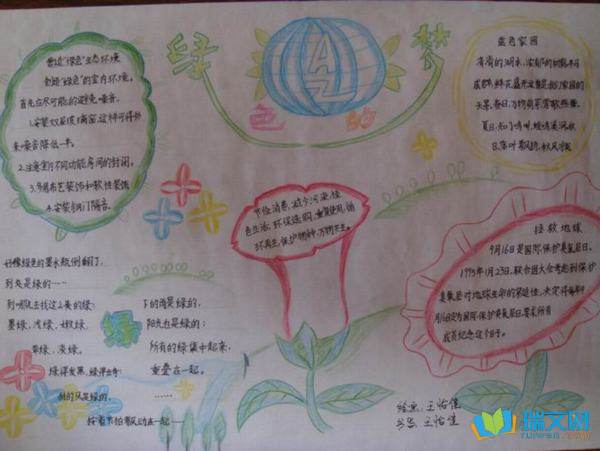 绿 色 的 梦
营造"绿色"生态环境
创造"绿色"的室内环境,
首先应尽可能的避免噪音。
1.安装双层玻璃窗,这样可将外
来噪音降低一半。
2.注意室内不同功能房间的封闭。
3.多用布艺装饰和软性装饰
4.安装钢门隔音。
蓝色家园
节俭消费,减少污染,绿
色生活,环保选购,重复使用,循
环再生,保护物种,万物共生。
拯救地球
9月16是国际保护臭氧层日。
1995年1月23日,联合国大会考虑到保护
臭氧层对地球生命的紧迫性,决定将每年9
月16日定为国际保护臭氧层日,要求所有
成员纪念这个日子。
好像绿色的墨水瓶倒翻了,
到处是绿的……
到哪儿去找这么多的绿:
墨绿,浅绿,嫩绿
翠绿,淡绿,
绿得发黑,绿得出奇;
刮的风是绿的,
下的雨是绿的,
阳光也是绿的;
所有的绿集中起来,
重叠在一起。
按着节拍飘动在一起……
绘画:王怡佳
书写:王怡佳
瑞文网
ruiwen.com